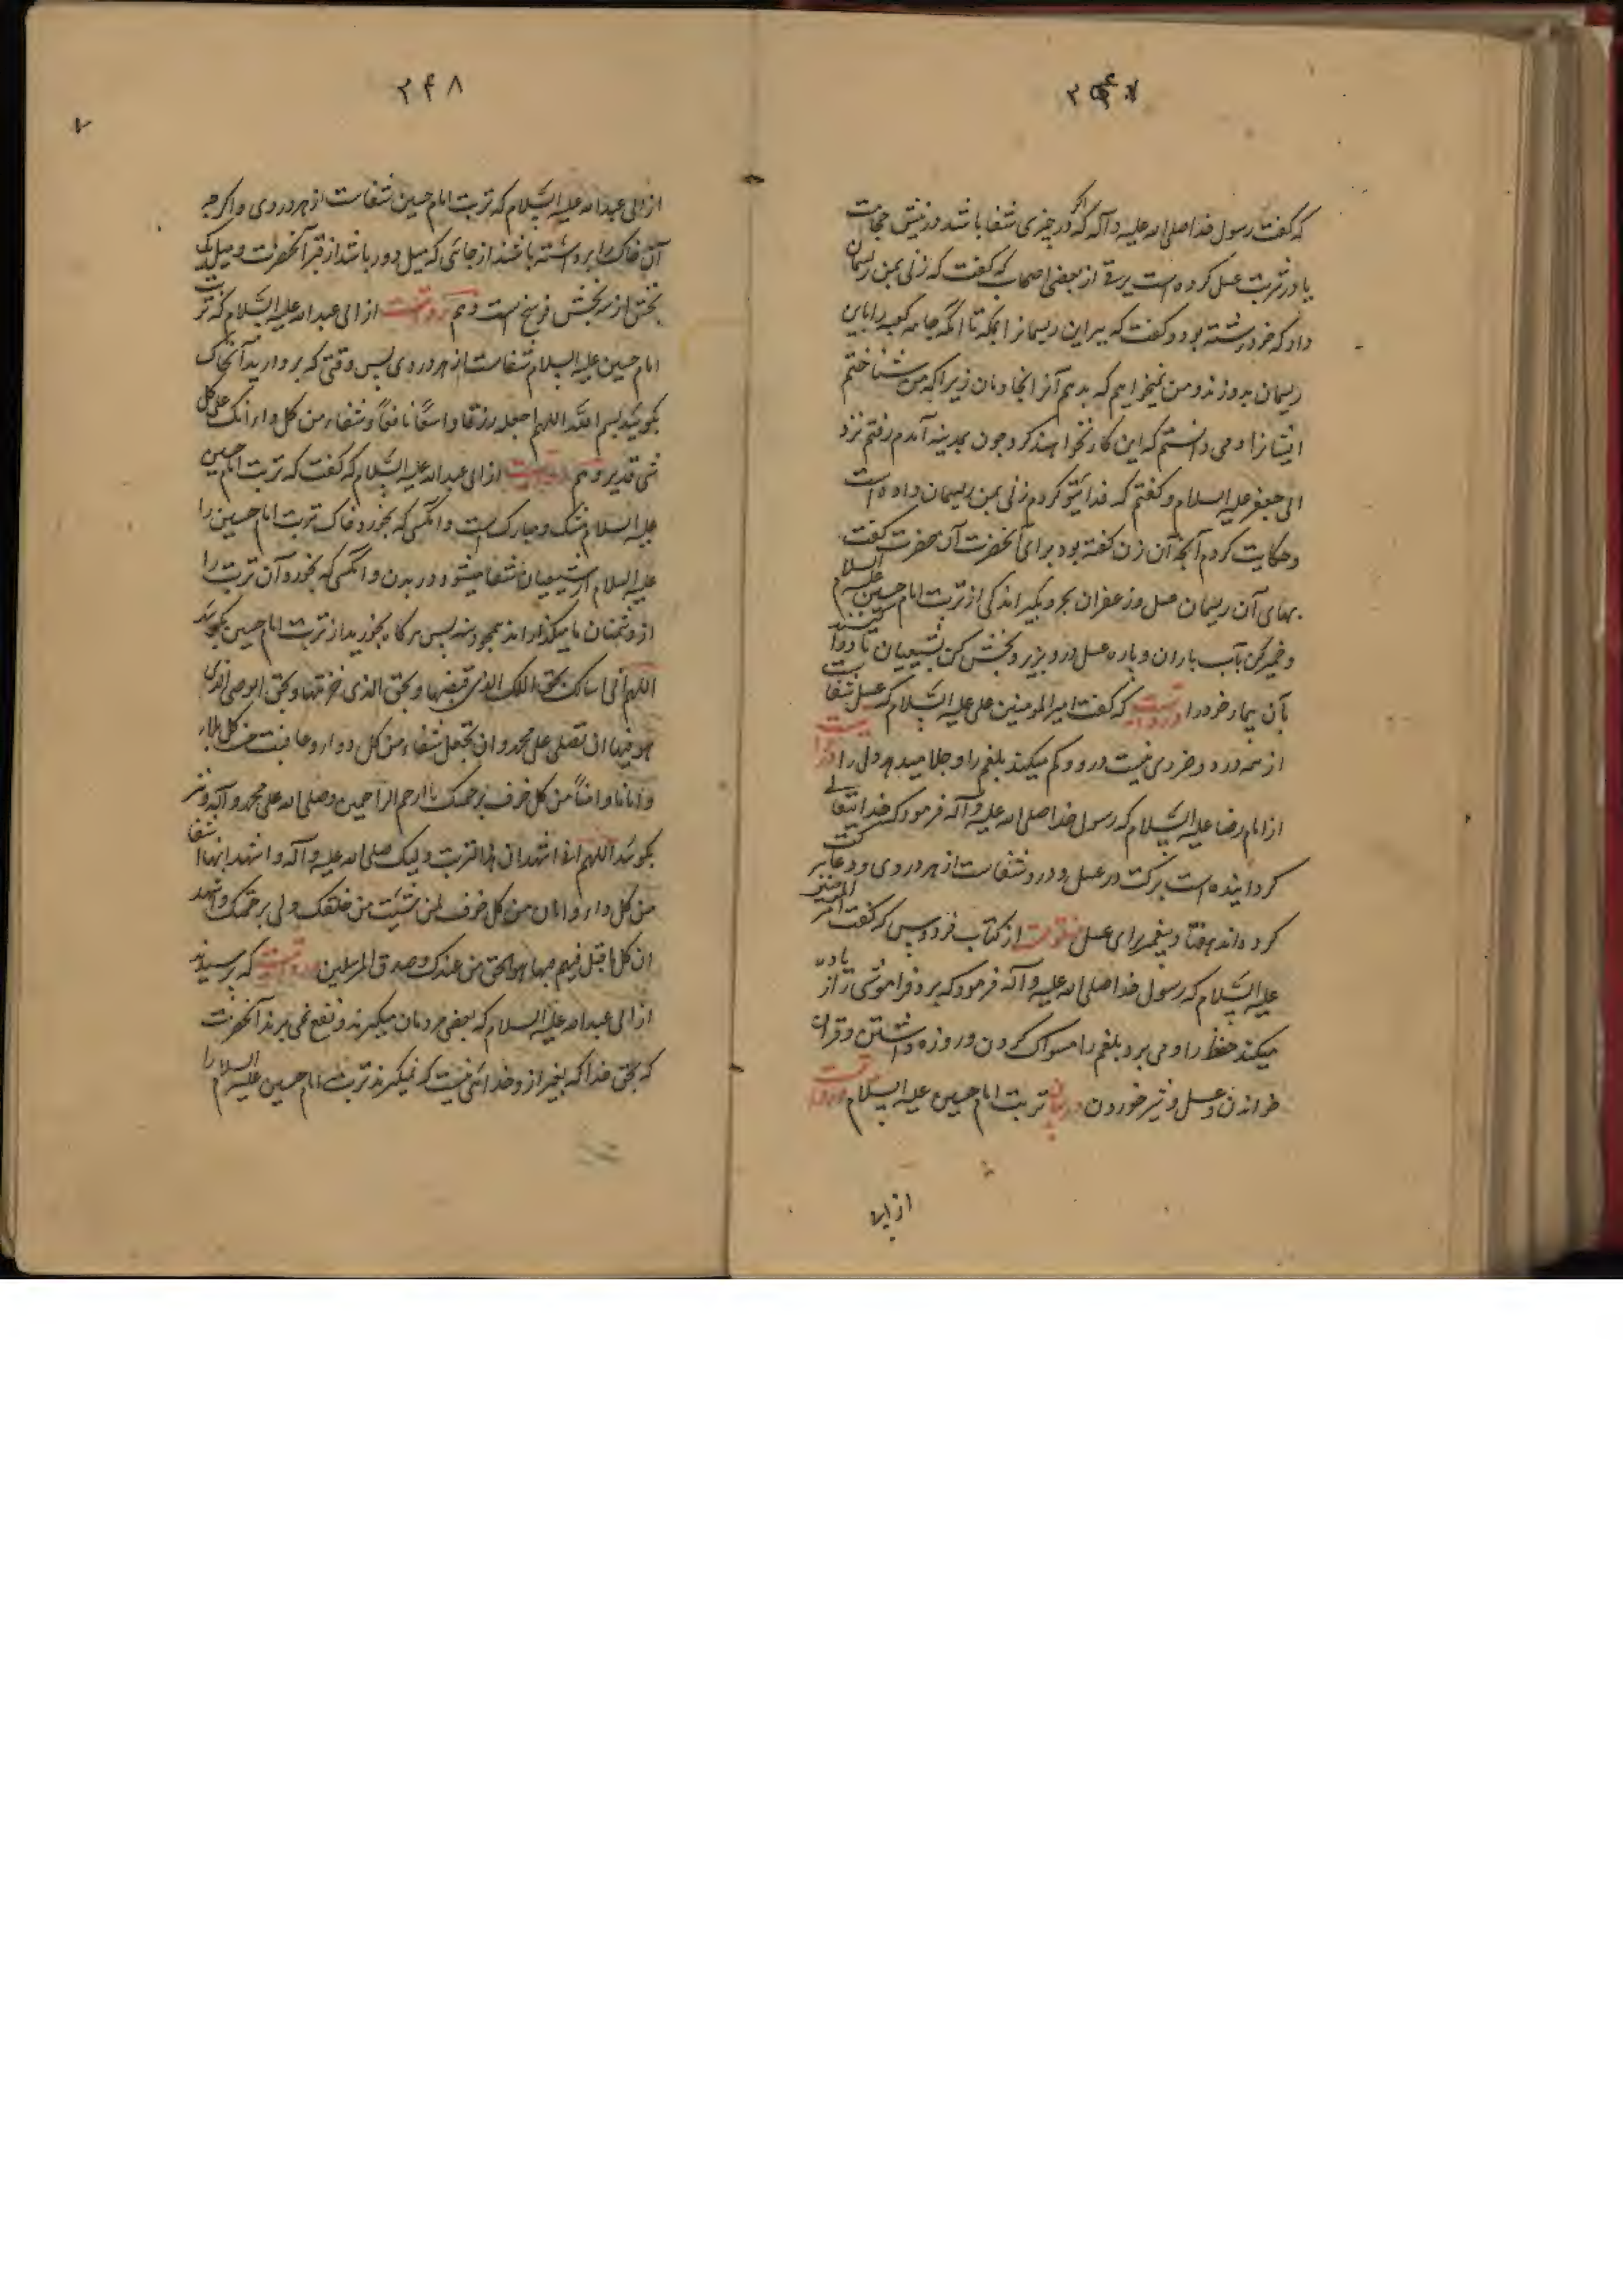 که گفت رسول خدا صلی الله علیه و آله که اگر در چیزی شفا باشد در نیش حجامت
یا در شربت عسل کرده است برقی از بعضی اصحاب که گفت که زنی بمن ریسمان
داد که خود رشته بود و گفت که ببر این ریسمانرا بمکه تا انکه جامه کعبه را باین
ریسمان بدوزند و من نمیخواهم که بدهم آنرا بخادمان زیرا که من شناختم
ایشانرا و می دانستم که این کار نخواهند کرد و چون بمدینه آمدم رفتم نزد
ابی جعفر علیه السلام و گفتم که فدایتو کردم زنی بمن ریسمان داده است
و حکایت کردم آنچه آن زن گفته بود برای آنحضرت آن حضرت گفت
بهای آن ریسمان عسل و زعفران بخر و بگیر اندکی از تربت امام حسین علیه السلام
و خمیر کن بآب باران و پاره عسل درو بریز و بخش کن بشیعیان تا دوا کنند
بآن بیمار خود را و روایتست که گفت امیر المومنین علی علیه السلام که عسل شفا
از همه درد و دردی نیست درو و کم میکند بلغم را و جلا میدهد دل را
از امام رضا علیه السلام که رسول خدا صلی الله علیه و آله فرمود که خدایتعالی
کردانیده است برکت در عسل و درو شفاست از هر دردی و دعا ببرکت
کرده اند هفتاد پیغمبر برای عسل از کتاب فردوس که گفت امیر المومنین
علیه السلام که رسول خدا صلی الله علیه و آله فرمود که برد فراموشی را و زیاده
میکند حفظ را و می برد بلغم را مسواک کردن و روزه داشتن و قران
خواندن و عسل و شیر خوردن در بیان تربت امام حسین علیه السلام روایتست
از ابی
۲۴۸
از ابی عبدالله علیه السلام که تربت امام حسین شفاست از هر دردی و اکرچه
آن خاک را برداشته باشند از جائی که میل دور باشد از قبر آنحضرت و میل یک
بخش از سه بخش فرسخ است و هم روایتست از ابی عبدالله علیه السلام که تربت
امام حسین علیه السلام شفاست از هر دردی پس وقتی که بردارید آنخاک
بکوئید بسم الله اللهم اجعله رزقا واسعًا نافعًا و شفاء من کل داء انک علی کل
شی قدیر و هم روایتست از ابی عبدالله علیه السلام که گفت که تربت امام حسین
علیه السلام مشک و مبارکست و انکسی که بخورد خاک تربت امام حسین را
علیه السلام از شیعیان ما شفا میشود در بدن و انکسی که بخورد آن تربت را
از دشمنان ما میکذارد اند همچو دنبه پس هر کاه بخورید از تربت امام حسین بکوئید
اللهم انی اسالک بحق الملک الذی قبضها و بحق الذی خزنها و بحق الوصی الذی
هو فیها ان تصلی علی محمد و ان تجعل شفاء من کل داء و عافیت من کل بلاء
و امانا و امناً من کل خوف برحمتک یا ارحم الراحمین و صلی الله علی محمد و آله
بکوئید اللهم انی اشهد ان هذا التربت ولیک صلی الله علیه و آله و اشهد انها شفا
من کل داء و امان من کل خوف لمن شئت من خلقک ولی برحمتک و اشهد
ان کل ما قیل فیهم فیها هو الحق من عندک و صدق المرسلین روایتست که پرسیدند
از ابی عبدالله علیه السلام که بعضی مردمان میکیرند و نفع نمی برند آنحضرت
که بحق خدا که بغیر از و خدائی نیست که نمیکیرند تربت امام حسین علیه السلام را